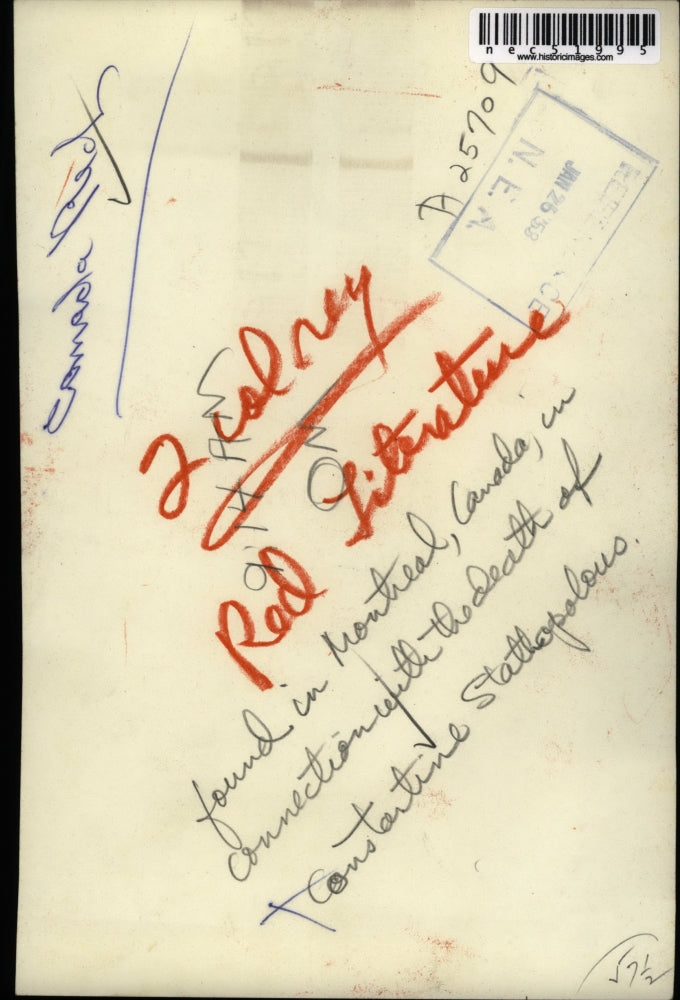 nec51995
www.historicimages.com
A 25709
REFERENCE
JAN 26 '58
N. E. A.
Canada
2 col
Red Literature
found in Montreal, Canada, in
connection with the death of
Constantine Stathopolous.